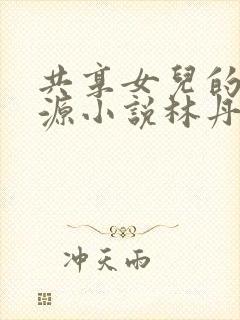 共享女兒的
源小說林丹
冲天雨